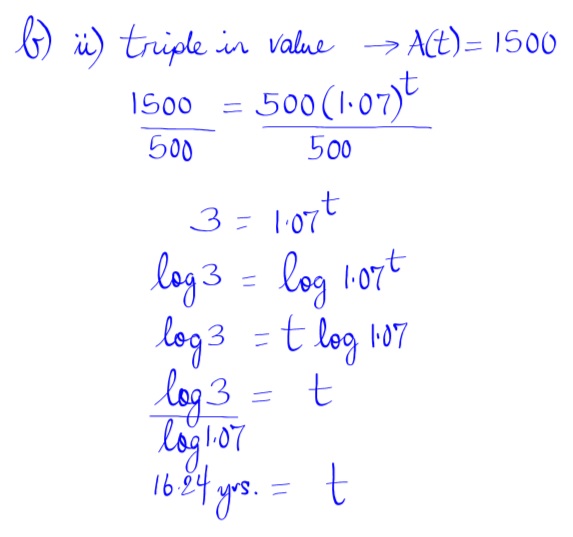 b) ii) triple in value → A(t) = 1500
1500/500 = 500(1.07)^t/500
3 = 1.07^t
log 3 = log 1.07^t
log 3 = t log 1.07
log 3/log 1.07 = t
16.24 yrs. = t